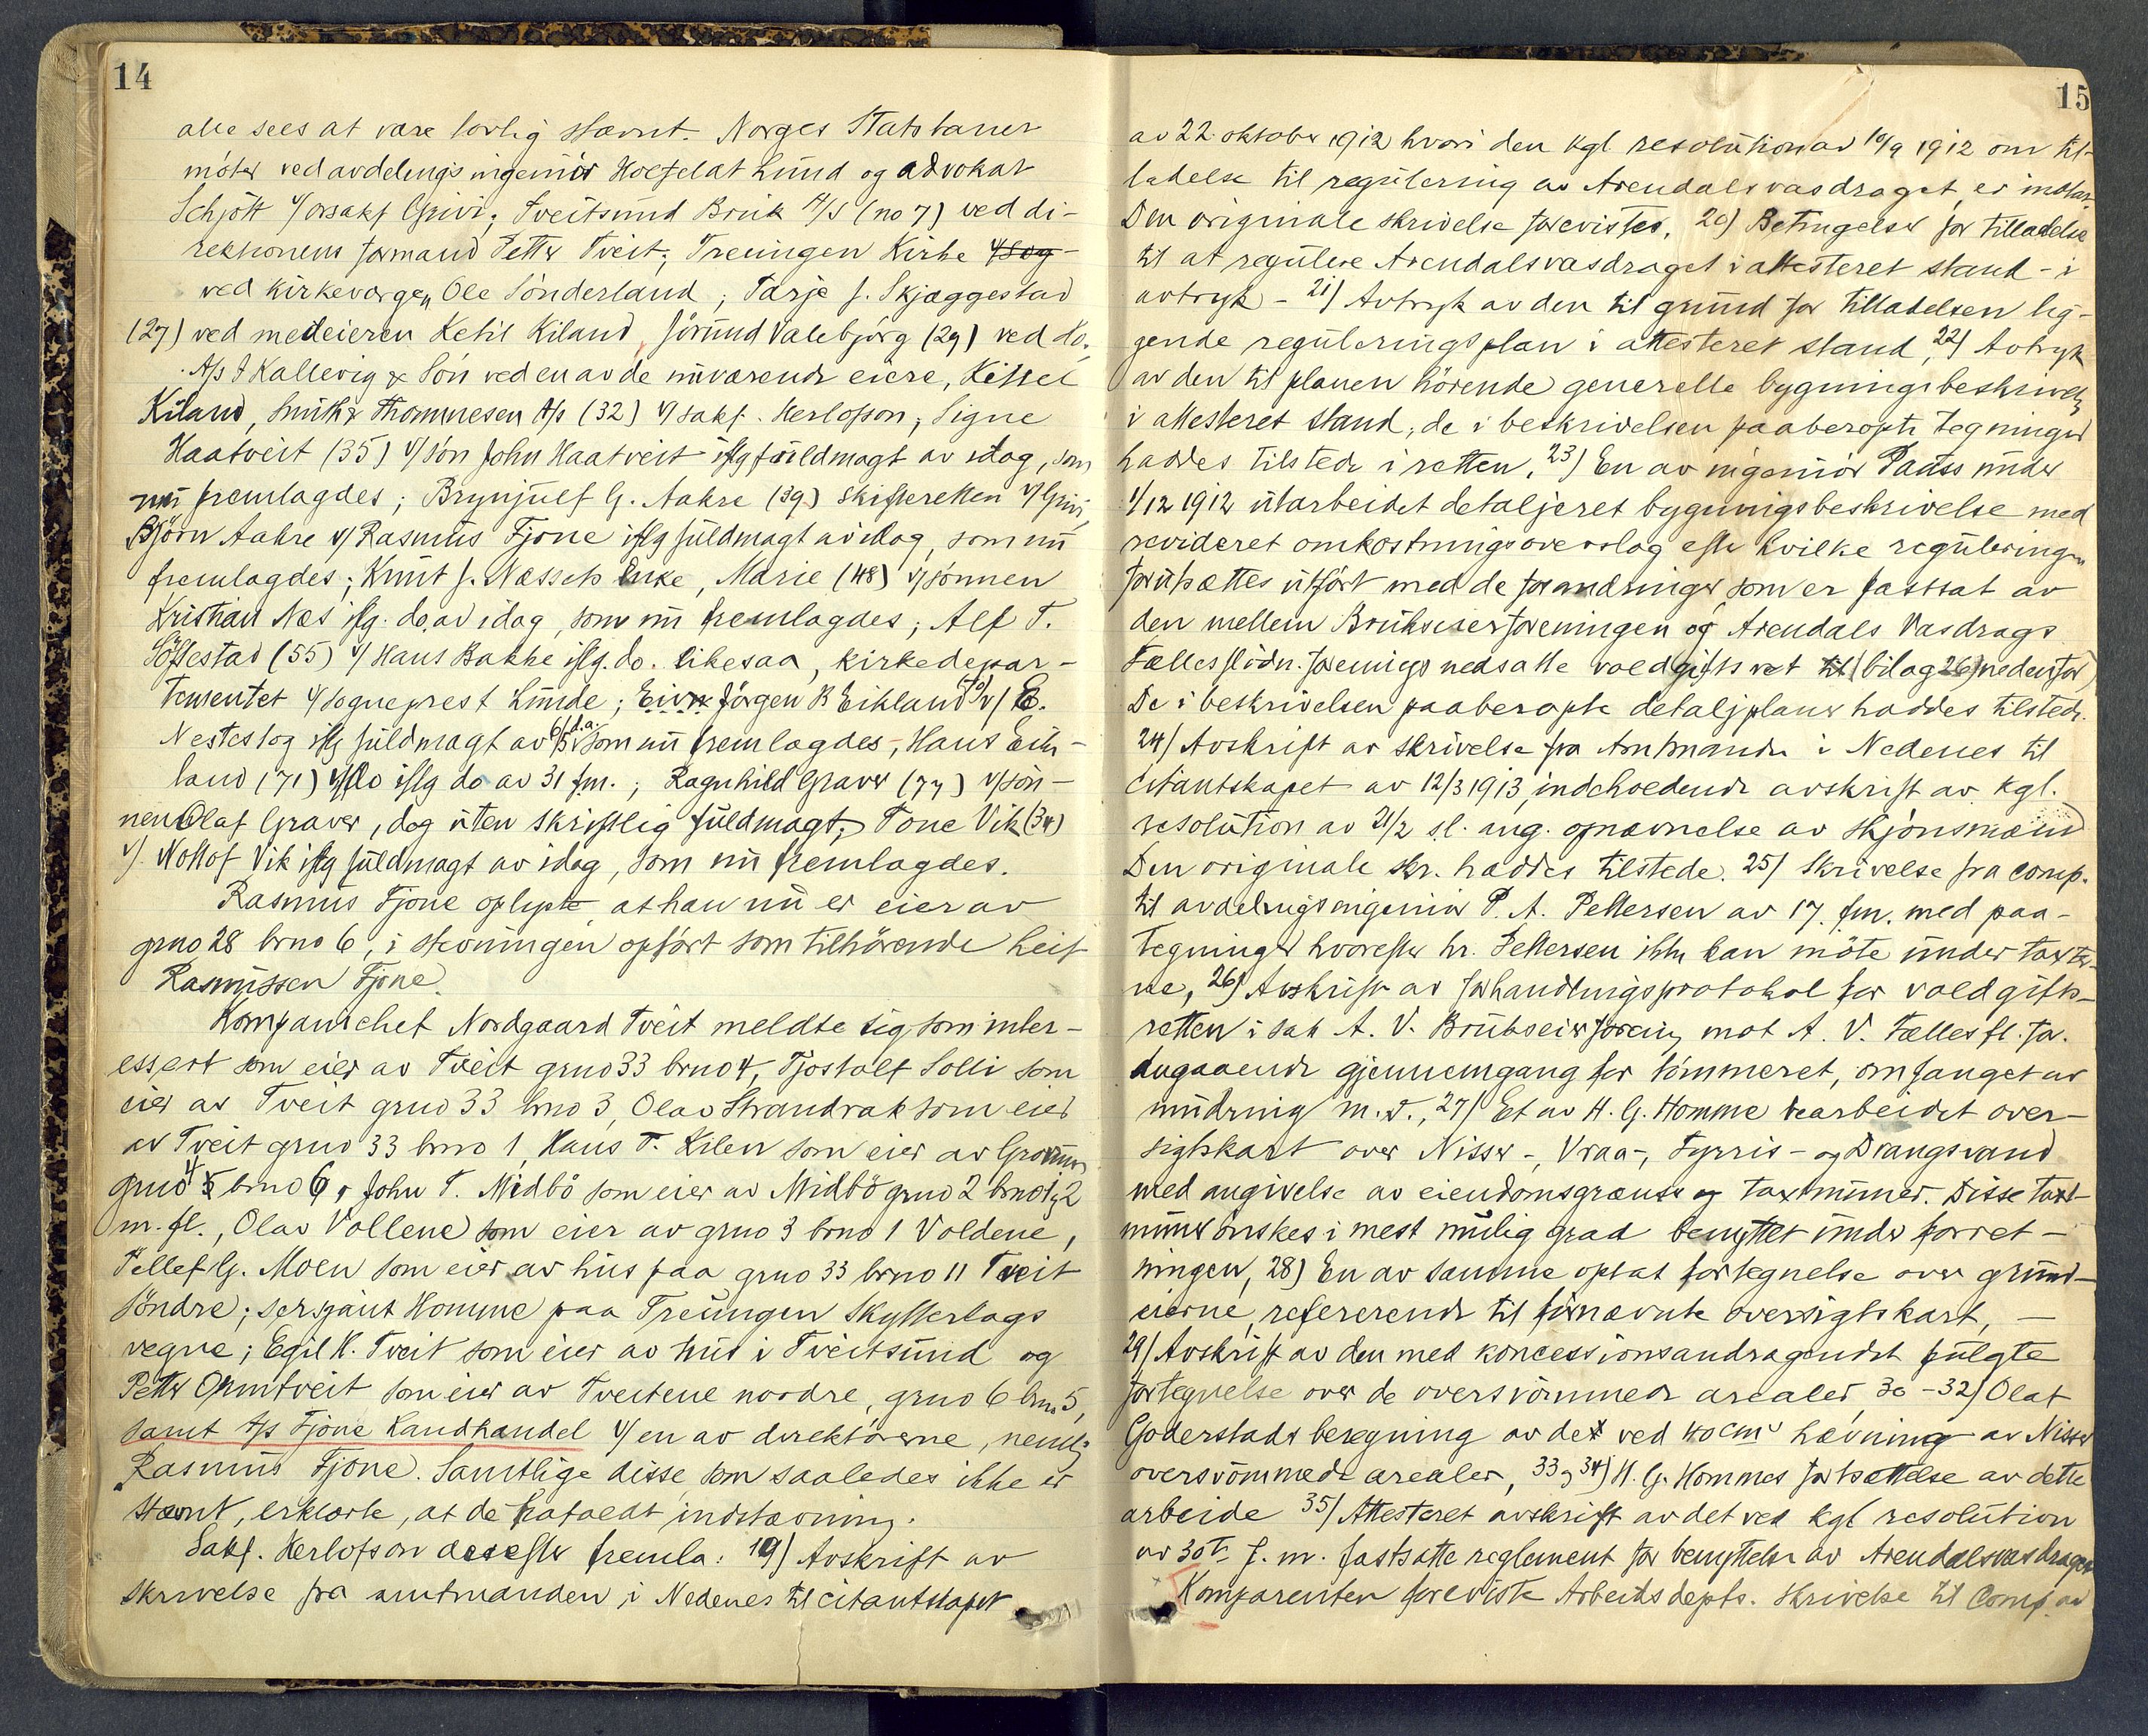 14
alle sees at være lovlig stævnt. Norges Statsbaner
møter ved avdelingsingeniör Hoelfeldt Lund og advokat
Schjött v/ orsakf Grivi; Tveitsund Bruk A/S (no 7) ved di-
rektionens formand Petter Tveit; Treungen Kirke
ved kirkevergen Ole Sönderland; Tarje J. Skjæggestad
(27) ved medeieren Ketil Kiland, Jörund Valebjörg (29) ved do.
A/s J Kallevig & Sön ved en av de nuværende eiere, Kittel
Kiland, Smith & Thommesen A/s (32) v/ sakf. Herlofson; Signe
Haatveit (35) v/ sön John Haatveit iflg fuldmagt av idag, som
nu fremlagdes; Brynjulf G. Aakre (39) skifteretten v/ Grivi,
Björn Aakre v/ Rasmus Fjone iflg fuldmagt av idag, som nu
fremlagdes; Knut J. Næssets Enke, Marie (48) v/ sönnen
Kristian Næs iflg. do. av idag, som nu fremlagdes; Alf T.
Söftestad (55) v/ Hans Bakke iflg. do. likesaa, kirkedepar-
tementet v/ sogneprest Lunde; Jörgen B Eikland (70) v/ E.
Nesteslog iflg fuldmagt av 6/5 d.a. som nu fremlagdes, Hans Eik-
land (71) v/ do iflg do av 31 f.m.; Ragnhild Graver (77) v/ sön-
nen Olaf Graver, dog uten skriftlig fuldmagt; Tone Vik (34)
v/. Nottof Vik iflg fuldmagt av idag, som nu fremlagdes.
Rasmus Fjone oplyste, at han nu er eier av
grno 28 brno 6, i stevningen opfört som tilhörende Leif
Rasmussen Fjone.
Kompanichef Nordgaard Tveit meldte sig som inter-
essert som eier av Tveit grno 33 brno 4, Tjostolf Solli som
eier av Tveit grno 33 brno 3, Olav Strandrak som eier
av Tveit grno 33 brno 1, Hans T. Kilen som eier av
grno 4 brno 6, John T. Midbö som eier av Midbö grno 2 brno 1, 2
m. fl., Olav Vollene som eier av grno 3 brno 1 Voldene,
Tellef G. Moen som eier av hus paa grno 33 brno 11 Tveit
Söndre; sersjant Homme paa Treungen Skytterlags
vegne; Egil K. Tveit som eier av hus i Tveitsund og
Petter Opmtveit som eier av Tveitene nordre, grno 6 brno 5,
samt A/s Fjone Landhandel v/ en av direktörerne, nemlig
Rasmus Fjone. Samtlige disse, som saaledes ikke er
stævnt, erklærte, at de frafaldt indstævning.
Sakf. Herlofson derefter fremla: 19) Avskrift av
skrivelse fra amtmanden i Nedenes til citantskapet
15
av 22. oktober 1912 hvori den kgl. resolution av 10/9 1912 om til-
ladelse til regulering av Arendalsvasdraget, er indtat.
Den originale skrivelse forevistes. 20) Betingelser for tilladelse
til at regulere Arendalsvasdraget i attesteret stand - i
avtryk - 21) Avtryk av den til grund for tilladelsen lig-
gende reguleringsplan i attesteret stand, 22) Avtryk
av den til planen hörende generelle bygningsbeskrivelse
i attesteret stand, de i beskrivelsen paaberopte tegninger
haddes tilstede i retten, 23) En av ingeniör Paass under
1/12 1912 utarbeidet detaljeret bygningsbeskrivelse med
revideret omkostningsoverslag efter hvilke reguleringen
forutsættes utfört med de forandringer, som er fastsat av
den mellem Brukseierforeningen og Arendals Vasdrags
Fællesflödn. forenings nedsatte voldgiftsret (bilag 26 nedenfor)
De i beskrivelsen paaberopte detaljplaner haddes tilstede.
24) Avskrift av skrivelse fra Amtmanden i Nedenes til
citantskapet av 12/3 1913, indeholdende avskrift av kgl.
resolution av 21/2 s.l. ang. opnævnelse av skjönsmænd
Den originale skr. haddes tilstede. 25) Skrivelse fra comp.
til avdelingsingeniör P. A. Pettersen av 17. f.m. med paa-
tegninger hvorefter hr. Pettersen ikke kan möte under takster-
ne, 26) Avskrift av forhandlingsprotokol for voldgifts-
retten i sak A. V. Brukseierforening mot A. V. Fællesfl. for.
angaaende gjennemgang for tömmeret, omfanget av
mudring m. v., 27) Et av H. G. Homme utarbeidet over-
sigtskart over Nisser-, Vraa-, Fyrris- og Drangsvand
med angivelse av eiendomsgrænser og taxtnumer. Disse taxt-
numer önskes i mest mulig grad benyttet under forret-
ningen, 28) En av samme optat fortegnelse over grund-
eierne, refererende til förnævnte oversigtskart, —
29) Avskrift av den med koncessionsandragendet fulgte
fortegnelse over de oversvömmede arealer, 30 - 32) Olaf
Goderstads beregning av det ved 40 cm's hævning av Nisser
oversvömmede arealer, 33, 34) H. G. Hommes fortsættelse av dette
arbeide 35) Attesteret avskrift av det ved kgl resolution
av 30te f. m. fastsatte reglement for benyttelse av Arendalsvasdraget
Komparenten foreviste Arbeidsdepts. skrivelse til Comp. av